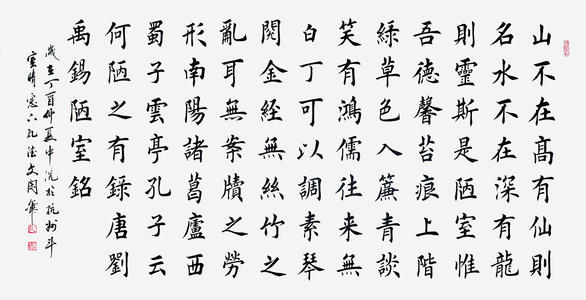 山不在高有仙則
名水不在深有龍
則靈斯是陋室惟
吾德馨苔痕上階
綠草色入簾青談
笑有鴻儒往來無
白丁可以調素琴
閱金經無絲竹之
亂耳無案牘之勞
形南陽諸葛廬西
蜀子雲亭孔子云
何陋之有錄唐劉
禹錫陋室銘
歲在丁酉仲夏中浣於杭州斗
室晴窓下孔德文